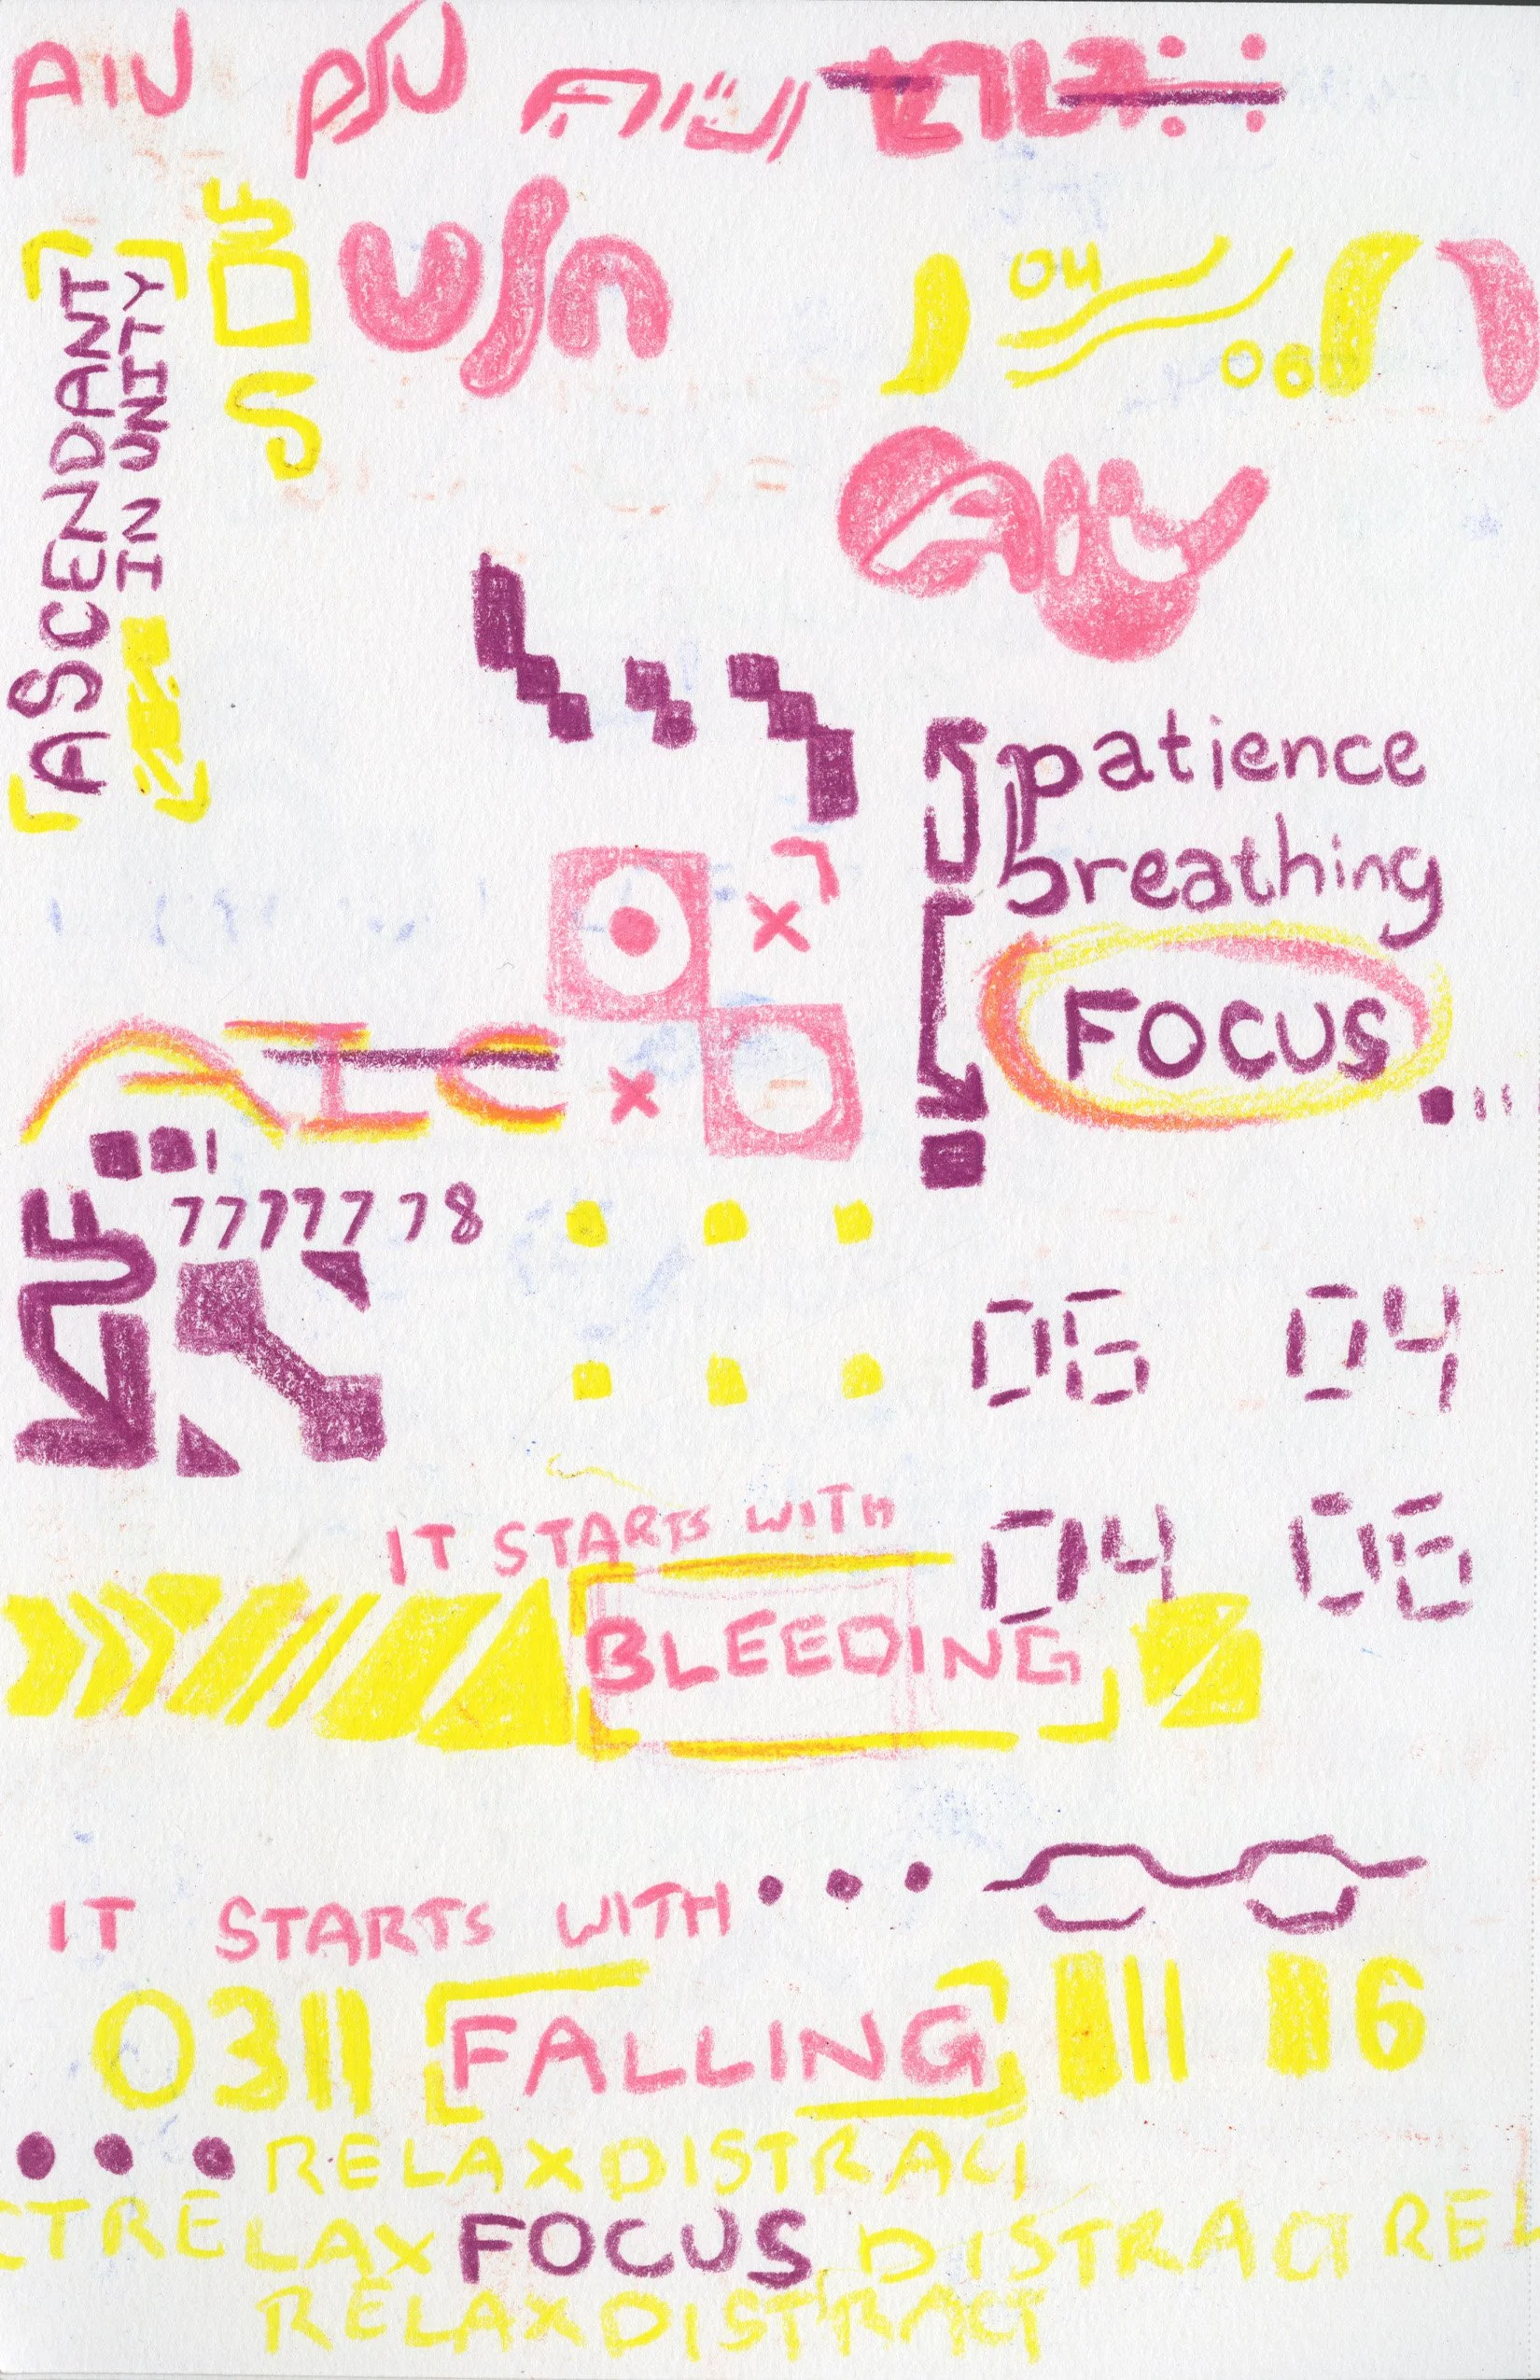 AIU
ASCENDANT
IN UNITY
04
06
patience
breathing
FOCUS
7777778
06 04
04 06
IT STARTS WITH
BLEEDING
IT STARTS WITH...
0311 [FALLING] 6
... RELAXDISTRACT
CTRELAX FOCUS DISTRACT REL
RELAXDISTRACT